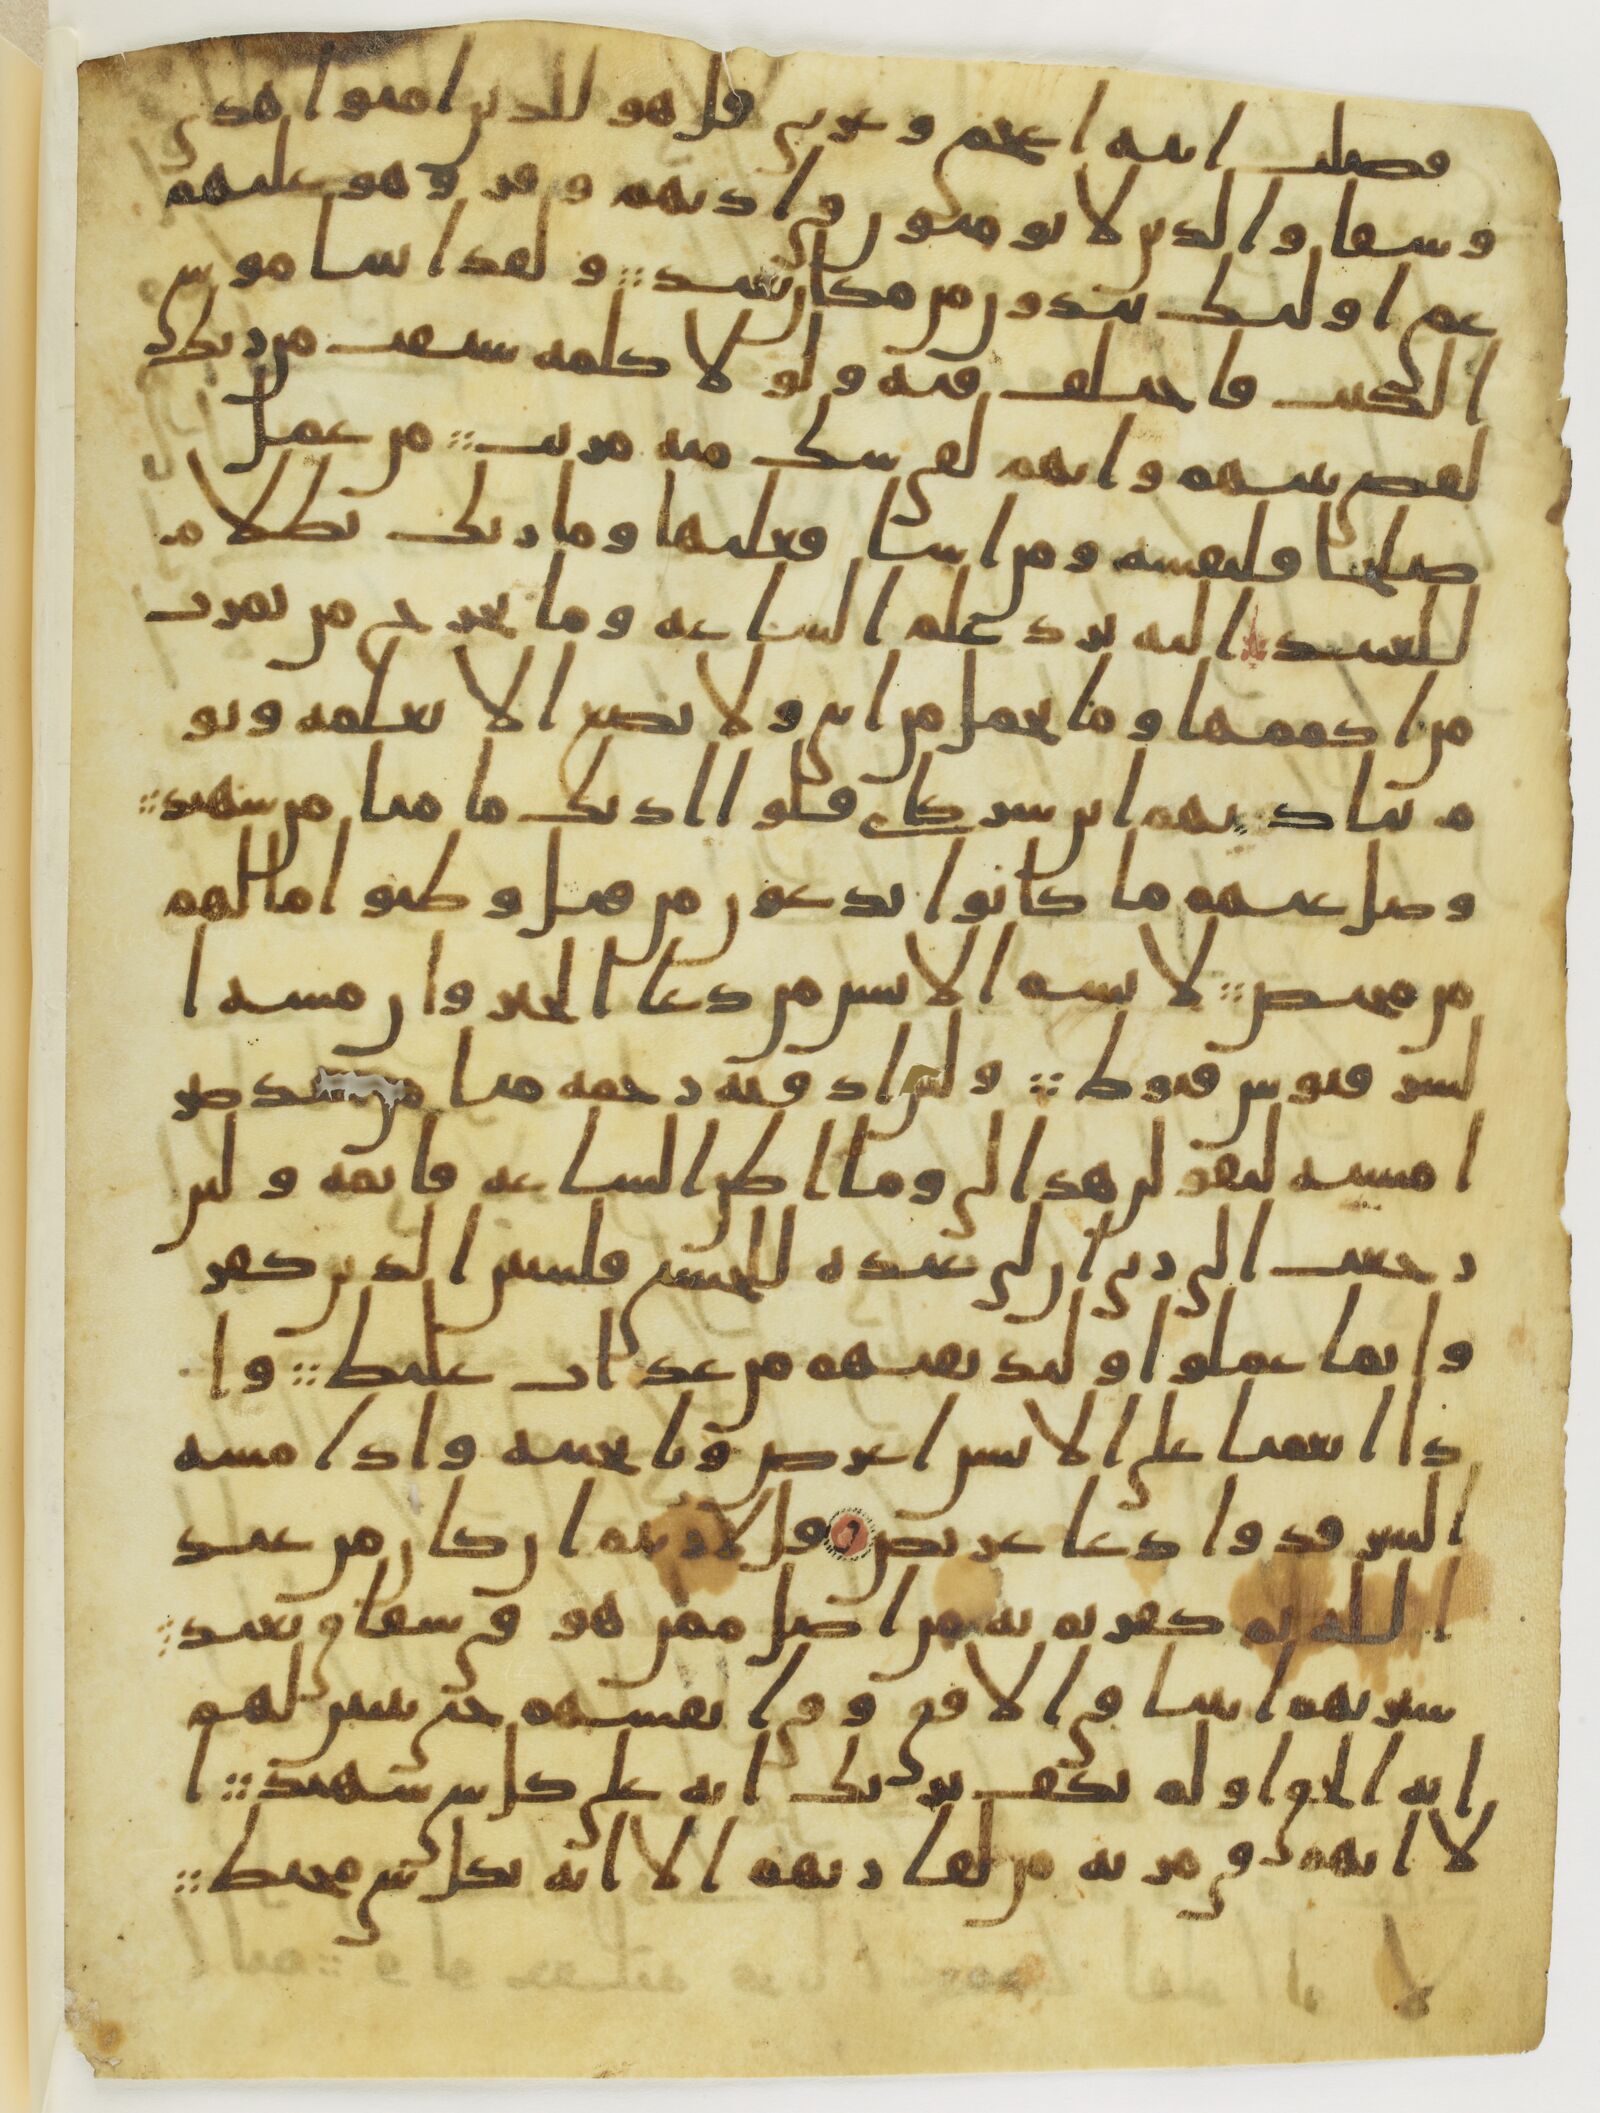 فصلت ايته اعجمي وعربي قل هو للذين امنوا هدى
وشفا والذين لا يومنون في اذنهم وقر وهو عليهم
عمى اوليك ينادون من مكان بعيد ولقد اتينا موسى
الكتب فاختلف فيه ولولا كلمه سبقت من ربك
لقضى بينهم وانهم لفي شك منه مريب من عمل
صلحا فلنفسه ومن اسا فعليها وما ربك بظلام
للعبيد اليه يرد علم الساعه وما تخرج من ثمرت
من اكممها وما تحمل من انثى ولا تضع الا بعلمه ويو
م يناديهم اين شركاي قلوا اذنك ما منا من شهيد
وضل عنهم ما كانوا يدعون من قبل وظنوا ما لهم
من محيص لا يسم الانسن من دعا الخير وان مسه ا
لشر فيوس قنوط ولين اذقنه رحمه منا من بعد ضر
ا مسته ليقولن هذا لي وما اظن الساعه قايمه ولين
رجعت الى ربي ان لي عنده للحسنى فلننبين الذين كفر
وا بما عملوا ولنذيقنهم من عذاب غليظ وا
ذا انعمنا على الانسن اعرض ونا بجنبه واذا مسه
الشر فذوا دعا عريض قل اريتم ان كان من عند
الله ثم كفرتم به من اضل ممن هو في شقاق بعيد
سنريهم ايتنا في الافق وفي انفسهم حتى يتبين لهم
انه الحق اولم يكف بربك انه على كل شى شهيد ا
لا انهم في مريه من لقا ربهم الا انه بكل شى محيط